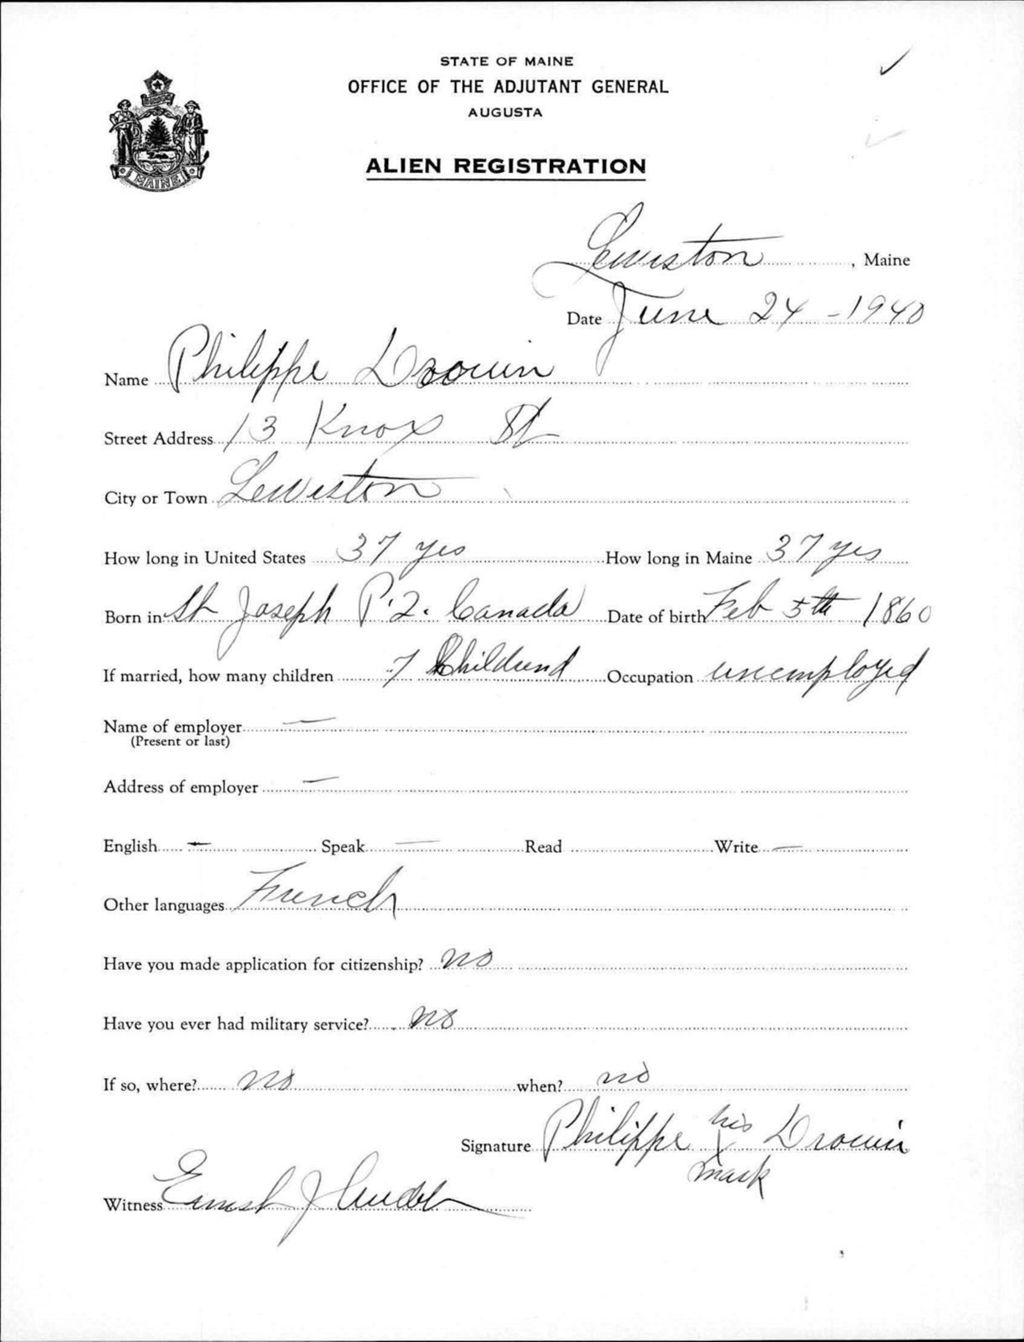 STATE OF MAINE
OFFICE OF THE ADJUTANT GENERAL
AUGUSTA
MAINE
ALIEN REGISTRATION
Lewiston, Maine
Date June 24 - 1940
Name Philippe Drouin
Street Address 13 Knox St
City or Town Lewiston
How long in United States 37 yrs How long in Maine 37 yrs
Born in St Joseph P.Q. Canada Date of birth Feb 5th 1860
If married, how many children 7 Occupation unemployed
Name of employer —
(Present or last)
Address of employer —
English — Speak — Read Write —
Other languages French
Have you made application for citizenship? no
Have you ever had military service? no
If so, where? no when? no
his
Signature Philippe X Drouin
mark
Witness Ernest J